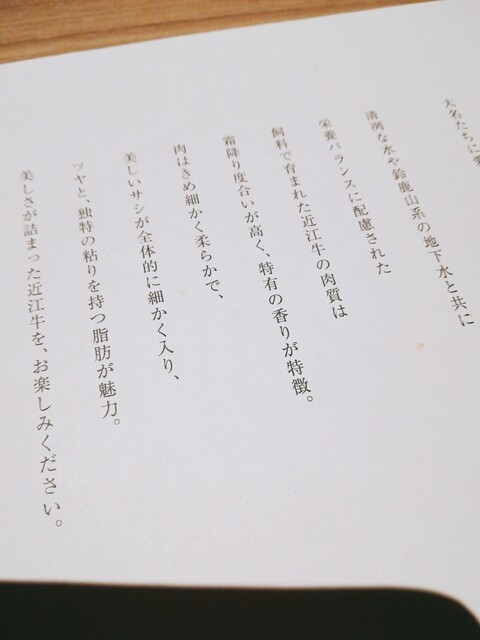 大名たちに
清冽な水や鈴鹿山系の地下水と共に
栄養バランスに配慮された
飼料で育まれた近江牛の肉質は
霜降り度合いが高く、特有の香りが特徴。
肉はきめ細かく柔らかで、
美しいサシが全体的に細かく入り、
ツヤと、独特の粘りを持つ脂肪が魅力。
美しさが詰まった近江牛を、お楽しみください。